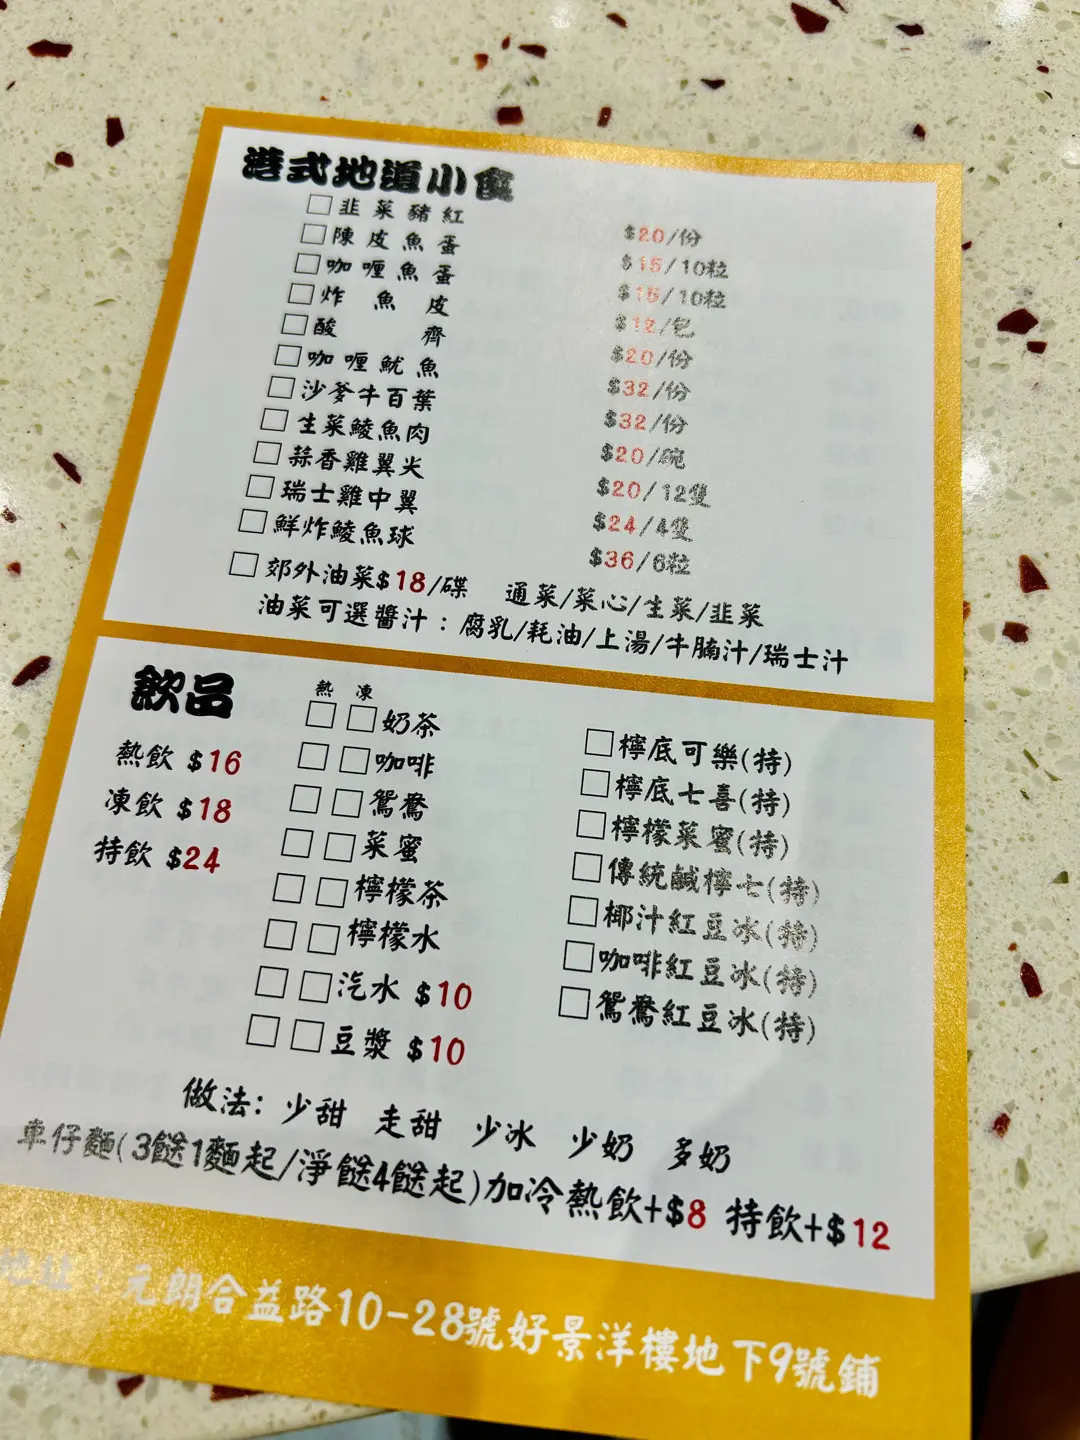 港式地道小食
韭菜豬紅 $20/份
陳皮魚蛋 $15/10粒
咖喱魚蛋 $15/10粒
炸魚皮 $12/包
酸齊 $20/份
咖喱魷魚 $32/份
沙爹牛百葉 $32/份
生菜鯪魚肉 $20/碗
蒜香雞翼尖 $20/12隻
瑞士雞中翼 $24/4隻
鮮炸鯪魚球 $36/6粒
郊外油菜$18/碟 通菜/菜心/生菜/韭菜
油菜可選醬汁：腐乳/耗油/上湯/牛腩汁/瑞士汁
飲品
熱飲 $16
凍飲 $18
特飲 $24
熱 凍
奶茶
咖啡
鴛鴦
菜蜜
檸檬茶
檸檬水
汽水 $10
豆漿 $10
檸底可樂(特)
檸底七喜(特)
檸檬菜蜜(特)
傳統鹹檸七(特)
椰汁紅豆冰(特)
咖啡紅豆冰(特)
鴛鴦紅豆冰(特)
做法: 少甜 走甜 少冰 少奶 多奶
車仔麵(3餸1麵起/淨餸4餸起)加冷熱飲+$8 特飲+$12
地址：元朗合益路10-28號好景洋樓地下9號鋪